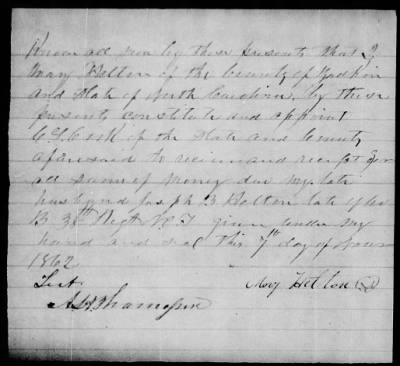 Know all men by these presents that I
Mary Helton of the County of Yadkin
and State of North Carolina, by these
presents constitute and appoint
C. L. Cook of the State and County
aforesaid to receive and receipt for
all sums of money due my late
husband Joseph B Helton late of Co
B 38th Regt N.C.T. given under my
hand and seal this 7th day of Novm
1862
Test Mary Helton
Thompson